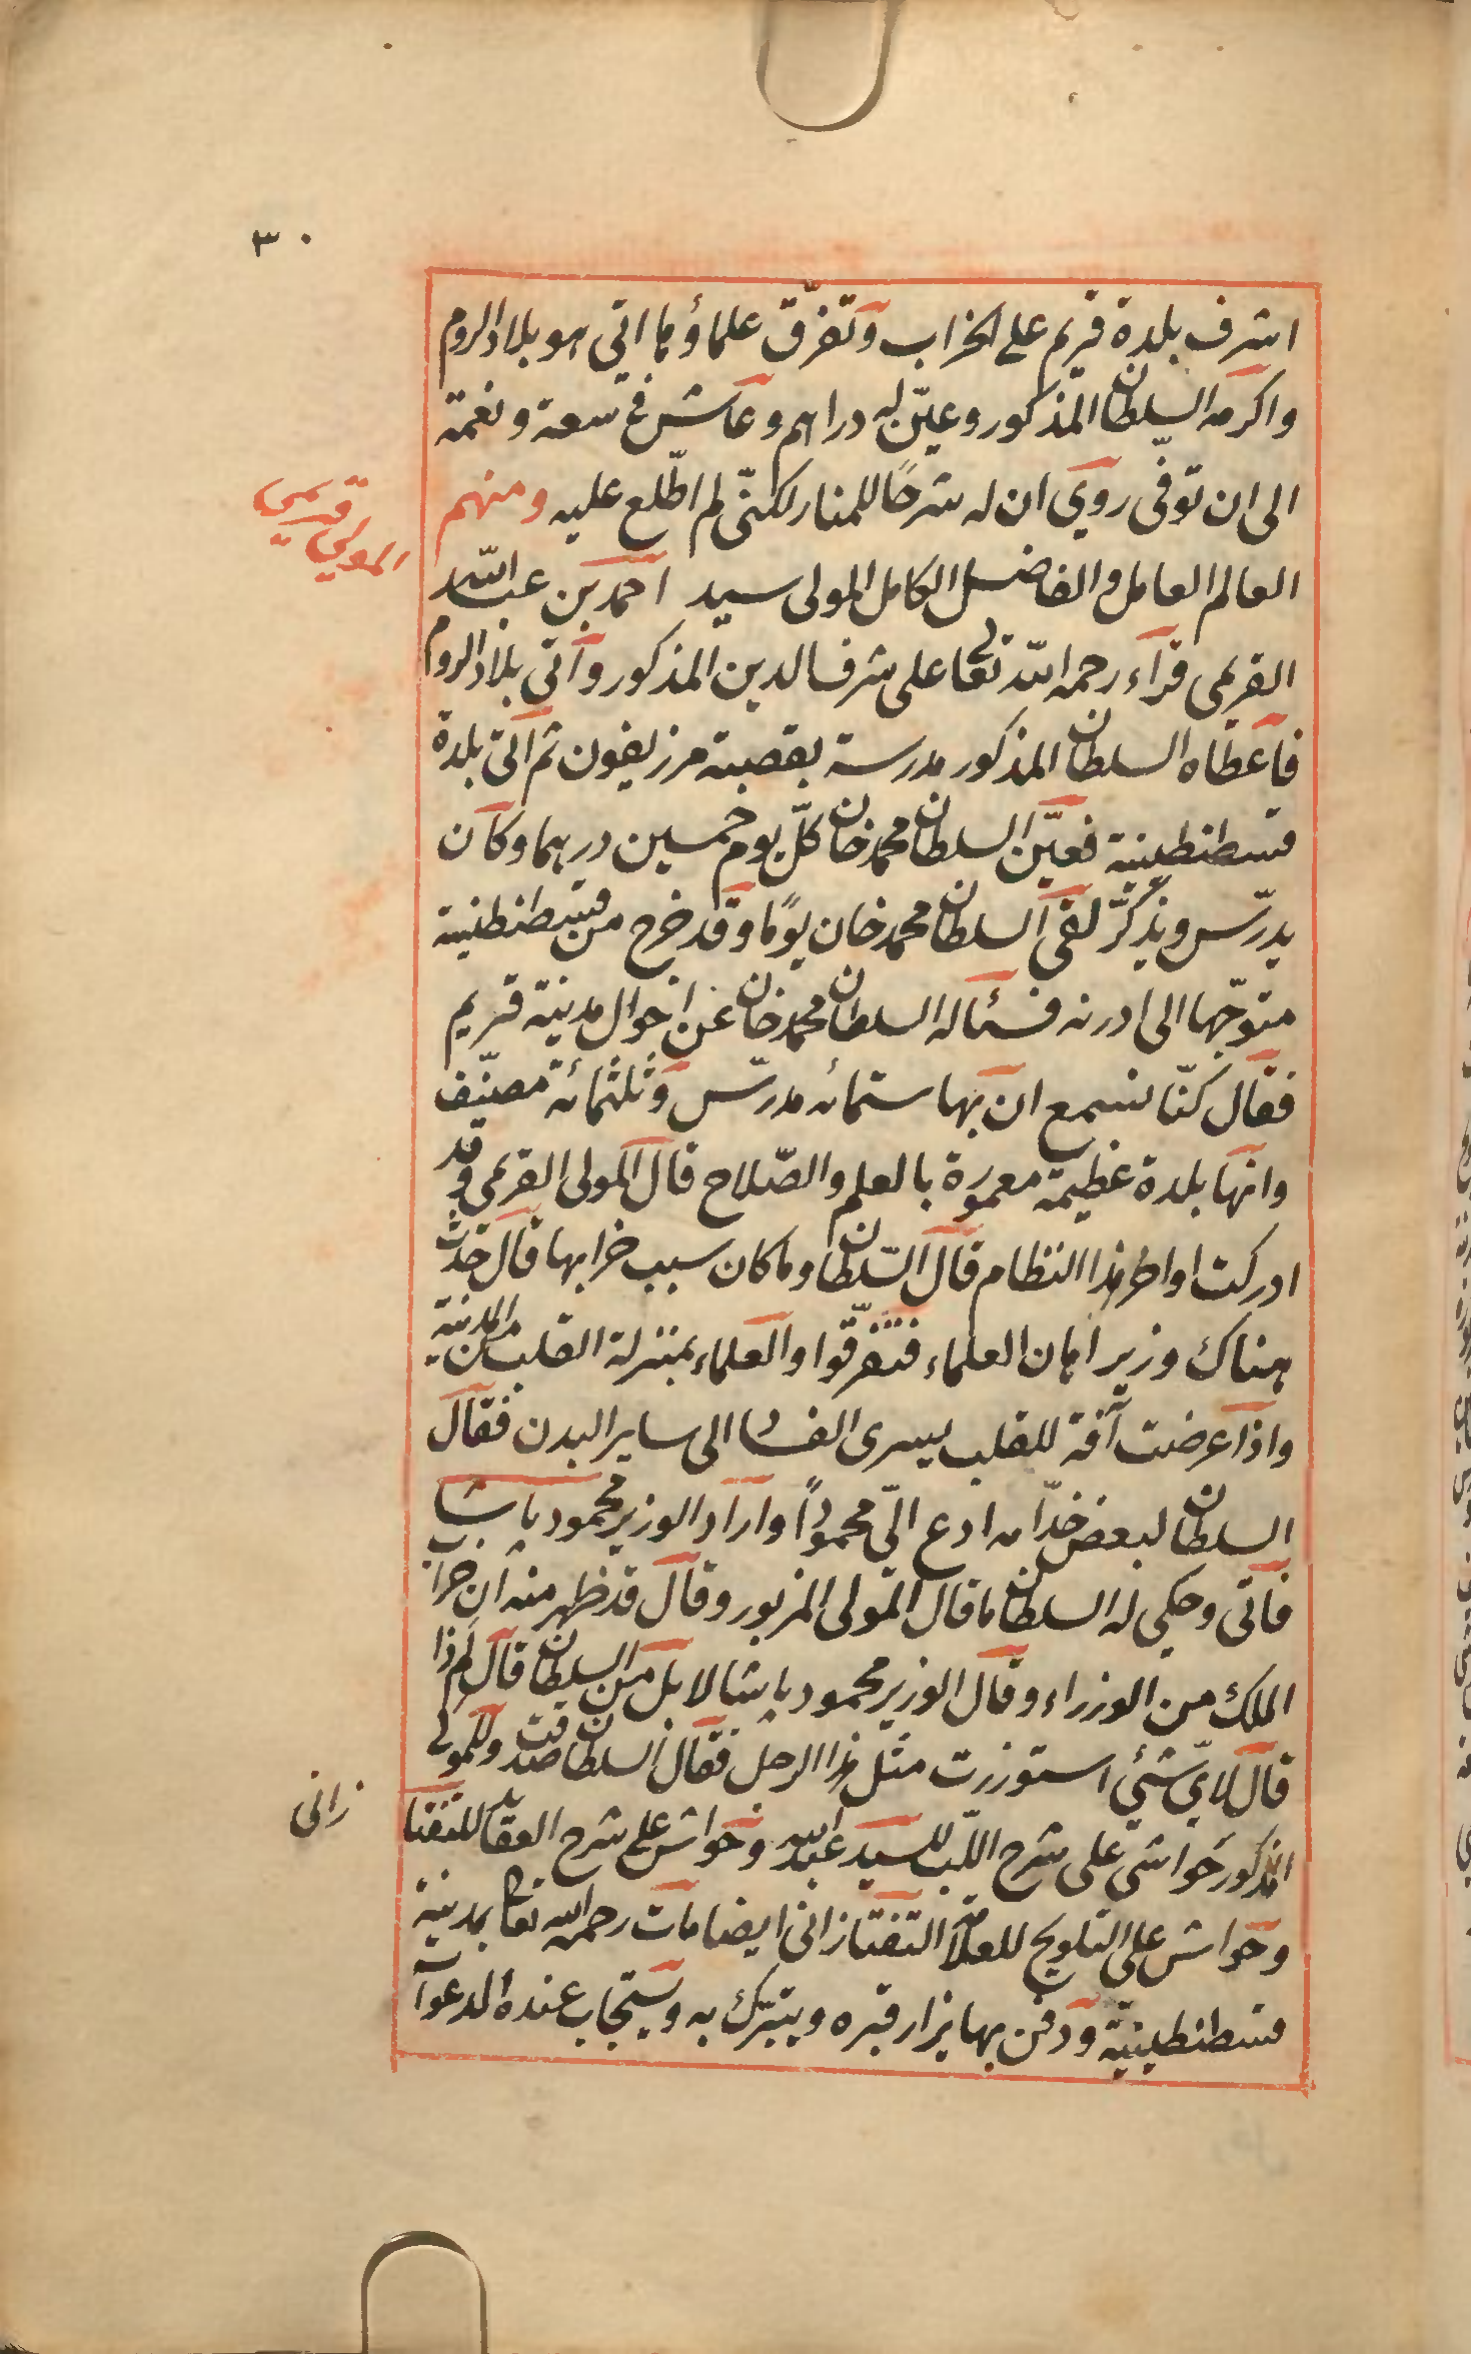 ٣٠
اشرف بلدة قريم على الخراب وتفرّق علماؤها اتى هو بلاد الروم
واكرمه السلطان المذكور وعيّن له دراهم وعاش فى سعة ونعمة
الى ان توفّى روى ان له شرحًا للمنار لكنّى لم اطّلع عليه ومنهم
المولى قريمى
العالم العامل والفاضل الكامل المولى سيد احمد بن عبد اللّه
القريمى قراء رحمه اللّه تعالى على شرف الدين المذكور واتى بلاد الروم
فاعطاه السلطان المذكور مدرسة بقصبة مرزيفون ثم اتى بلدة
قسطنطينية فعيّن السلطان محمد خان كلّ يوم خمسين درهما وكان
يدرّس ويذكّر لقى السلطان محمد خان يومًا وقد خرج من قسطنطنية
متوجّها الى ادرنه فسئاله السلطان محمد خان عن احوال مدينة قريم
فقال كنّا نسمع ان بها ستمائه مدرّس وثلثمائة مصنّف
وانها بلدة عظيمة معمورة بالعلم والصّلاح قال المولى القريمى وقد
ادركت اواخر هذا النظام قال السّلطان وما كان سبب خرابها قال حدث
هناك وزير اهان العلماء فتفرّقوا والعلماء بمنزلة القلب من المدينة
واذا عرضت آفة للقلب يسرى الفساد الى ساير البدن فقال
السلطان لبعض خدّامه ادع الىّ محمودًا واراد الوزير محمود پاشا
فاتى وحكى له السلطان ما قال المولى المزبور وقال قد ظهر منه ان خراب
الملك من الوزراء وقال الوزير محمود پاشا لا بل من السلطان قال لم ذا
قال لاىّ شئ استوزرت مثل هذا الرجل فقال السلطان صدقت وللمولى
المذكور حواشى على شرح اللّب للسيد عبد اللّه وحواش على شرح العقايد للتفتا
زانى
وحواش على التلويح للعلّامة التفتازانى ايضا مات رحمه اللّه تعالى بمدينة
قسطنطينيّة ودفن بها يزار قبره ويتبرّك به ويستجاب عنده الدعوآ